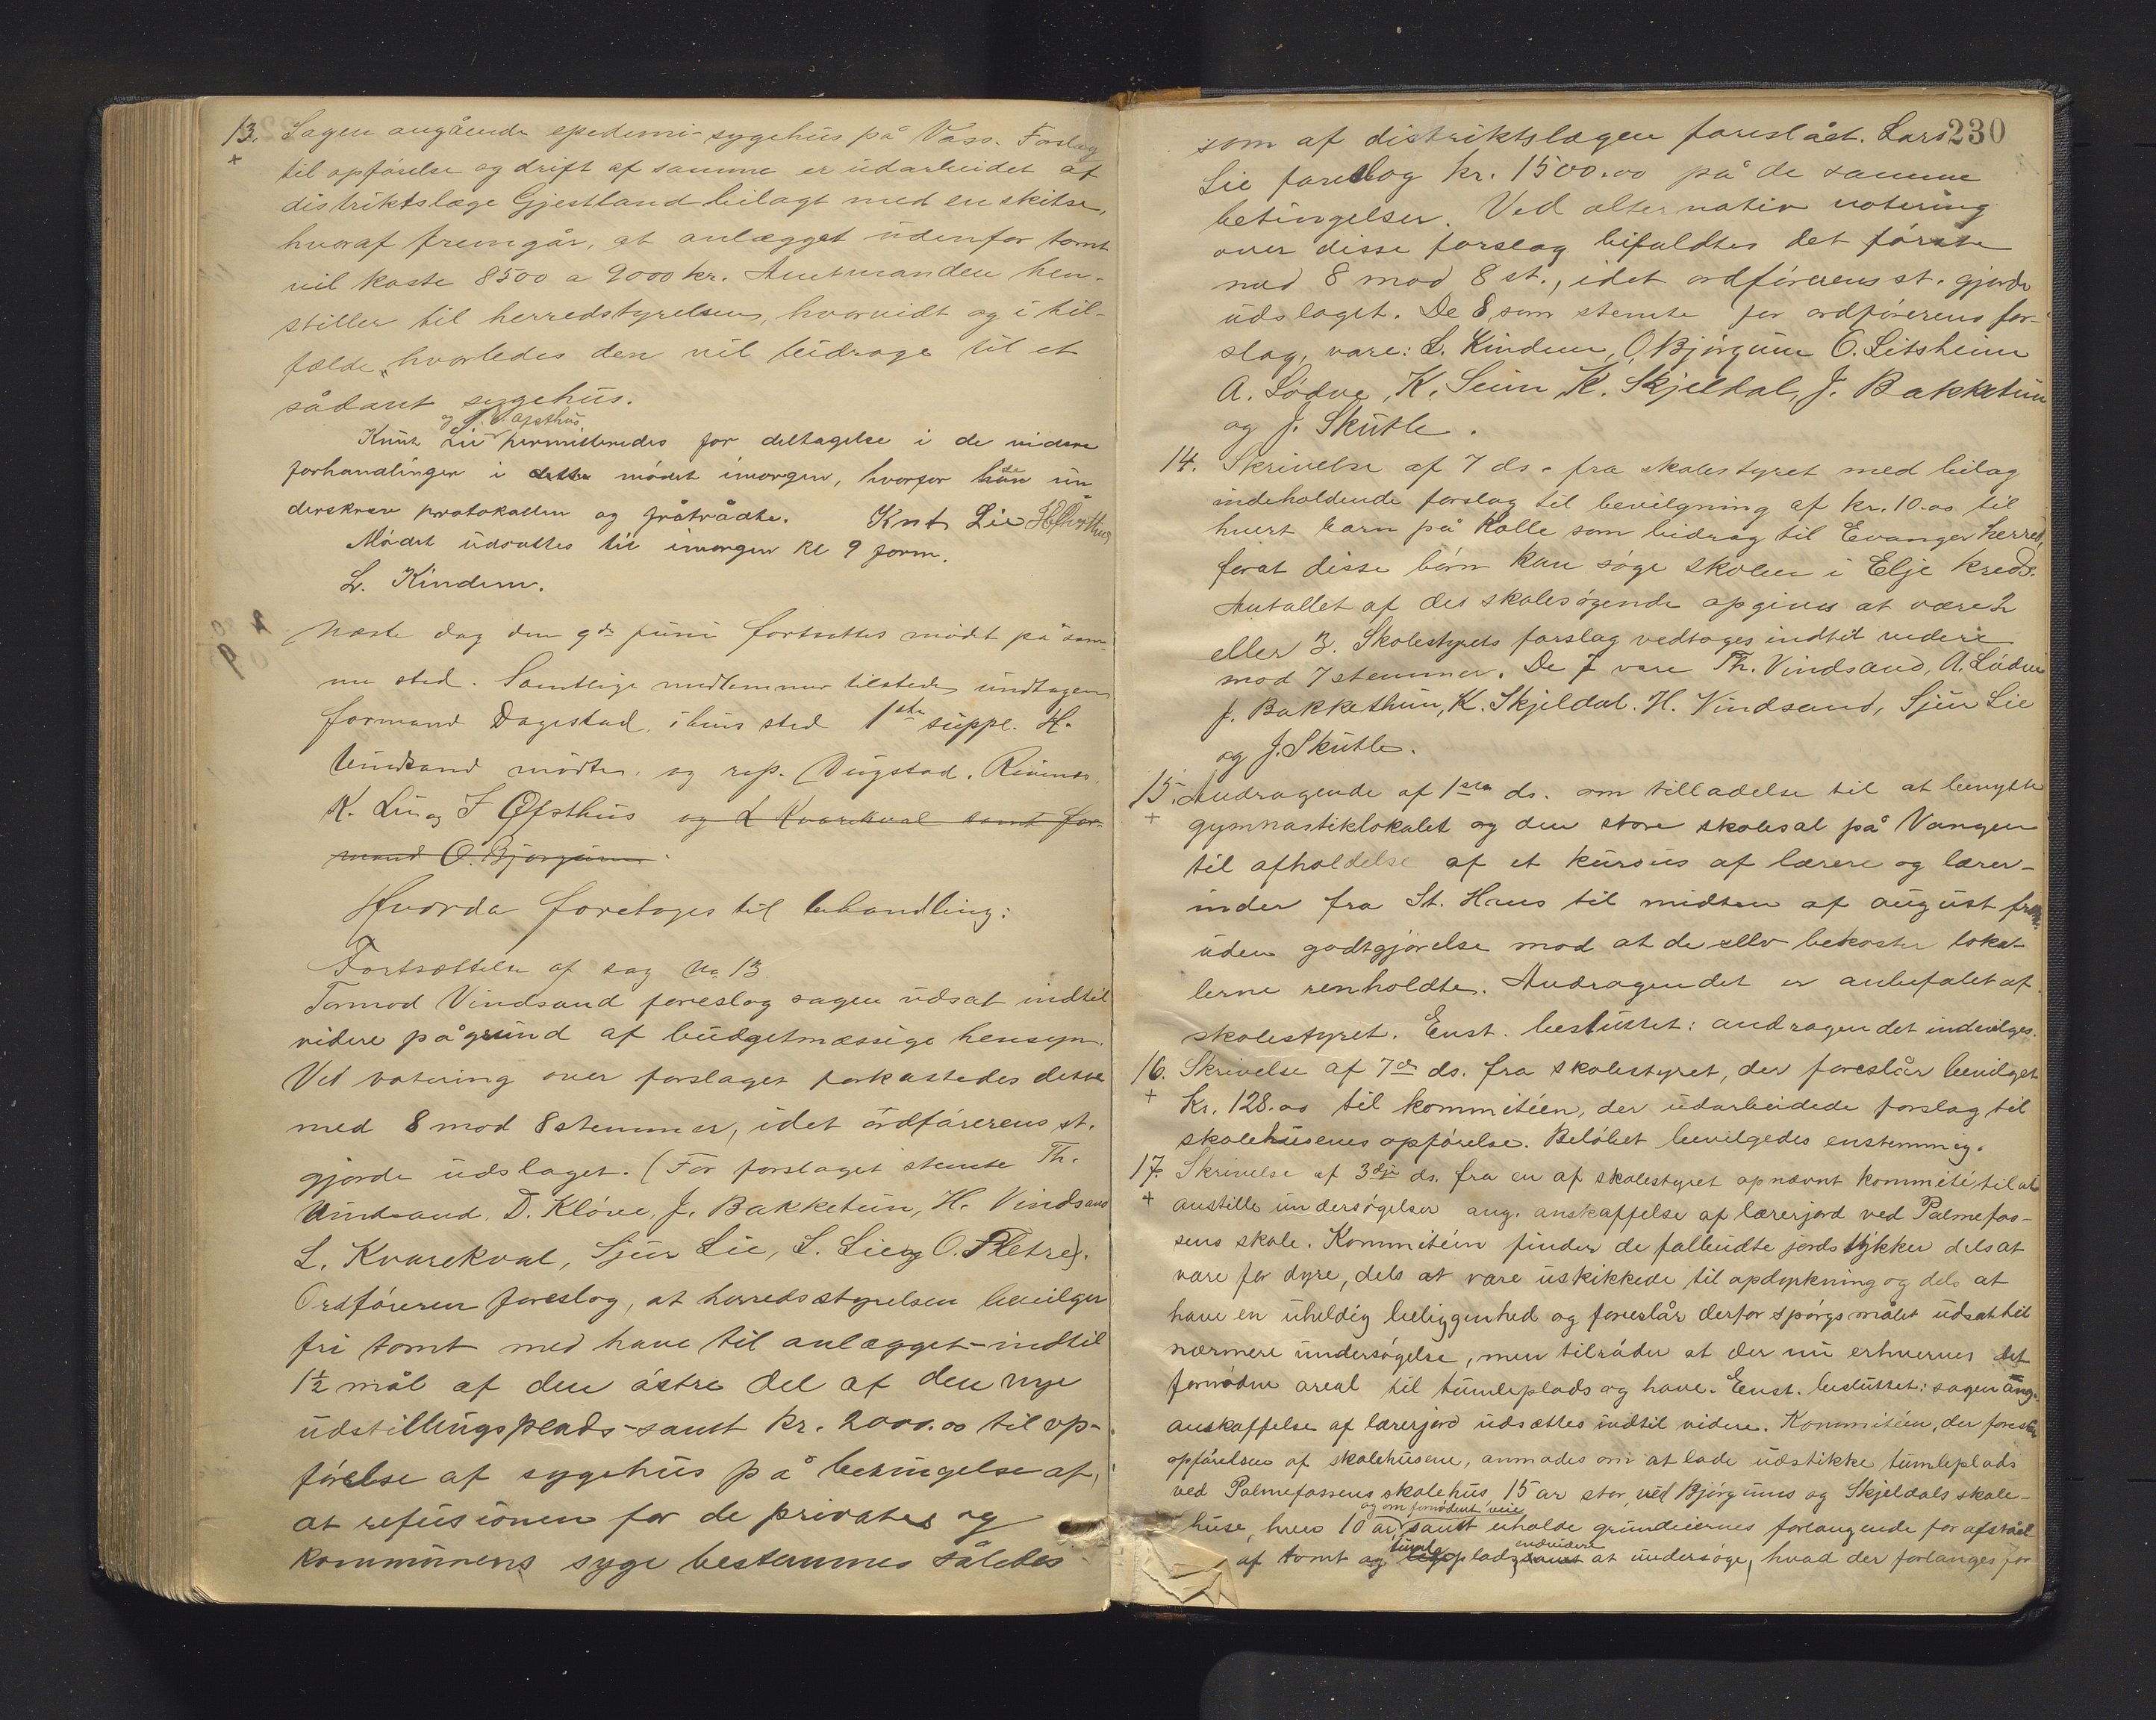 13. Sagen angående epedemi-sygehus på Voss. Forslag
+ til opførelse og drift af samme er udarbeidet af
distriktslæge Gjestland bilagt med en skitse,
hvoraf fremgår, at anlægget udenfor tomt
vil koste 8500 a 9000 kr. Amtmanden hen-
stiller til herredstyrelsen, hvorvidt og i til-
fælde, hvorledes den vil bidrage til et
sådant sygehus.
og J. Ø. Øfsthus
Knut Lie permitteredes for deltagelse i de videre
forhandlinger i dette mødet imorgen, hvorfor de un
derskrev protokollen og fråtrådte. Knut Lie
Mødet udsattes til imorgen kl 9 form.
L. Kindem.
Næste dag den 9de juni fortsattes mødt på sam-
me sted. Samtlige medlemmer tilstede undtagen
formand Dagestad, i hvis sted 1ste suppl. H.
Vindsand mødte, og rep. Dugstad, Rivenes,
K. Lie og J Øfsthus og L Kvarekval samt for-
mand O. Bjørgum.
Hvorda foretoges til behandling:
Fortsættelse af sag No 13
Tormod Vindsand foreslog sagen udsat indtil
videre på grund af budgetmæssige hensyn.
Ved votering over forslaget forkastedes dette
med 8 mod 8 stemmer, idet ordførerens st.
gjorde udslaget. (For forslaget stemte Th.
Vindsand, D. Kløve, J. Bakketun, H. Vindsand
L. Kvarekval, Sjur Lie, L. Lie og O. Fletre).
Ordføreren foreslog, at herredsstyrelsen bevilger
fri tomt med have til anlægget - indtil
1½ mål af den østre del af den nye
udstillingsplads - samt kr. 2000.00 til op-
førelse af sygehus på betingelse af,
at refusionen for de privates og
kommunens syge bestemmes således
230
som af distriktslægen foreslået. Lars
Lie foreslog kr. 1500.00 på de samme
betingelser. Ved alternativ votering
over disse forslag bifaldtes det første
med 8 mod 8 st., idet ordførerens st. gjorde
udslaget. De 8, som stemte for ordførerens for-
slag, vare: L. Kindem, O. Bjørgum O. Litsheim
A. Lødve, K. Seim, K. Skjeldal, J. Bakketun
og J. Skutle.
14. Skrivelse af 7 ds. fra skolestyret med bilag
indeholdende forslag til bevilgning af kr. 10.00 til
hvert barn på Kolle som bidrag til Evanger herred,
forat disse børn kan søge skolen i Elje kreds.
Antallet af des skolesøgende opgives at være 2
eller 3. Skolestyrets forslag vedtoges indtil videre
mod 7 stemmer. De 7 vare Th. Vindsand, A. Lødve
J. Bakkethun, K. Skjeldal. H. Vindsand, Sjur Lie
og J. Skutle.
15. Andragende af 1ste ds. om tilladelse til at benytte
+ gymnastiklokalet og den store skolesal på Vangen
til afholdelse af et kursus af lærere og lærer-
inder fra St. Hans til midten af august
uden godtgjørelse mod at de selv bekoster loka-
lerne renholdte. Andragendet er anbefalet af
skolestyret. Enst. besluttet: andragendet indvilges.
16. Skrivelse af 7de ds. fra skolestyret, der foreslår bevilget
+ Kr. 128.00 til kommitéen, der udarbeidede forslag til
skolehusenes opførelse. Beløbet bevilgedes enstemmig.
17. Skrivelse af 3dje ds. fra en af skolestyret opnævnt kommité til at
+ anstille undersøgelser ang. anskaffelse af lærerjord ved Palmefos-
sens skole. Kommitéen finder de falbudte jordstykker dels at
være for dyre, dels at være uskikkede til opdyrkning og dels at
have en uheldig beliggenhed og foreslår derfor spørgsmålet udsat til
nærmere undersøgelse, men tilråder at der nu erhverves det
fornødne areal til tumleplads og have. Enst. besluttet: sagen ang.
anskaffelse af lærerjord udsættes indtil videre. Kommitéen, der forestår
opførelsen af skolehusene, anmodes om at lade udstikke tumleplads
ved Palmefossens skolehus, 15 ar stor, ved Bjørgums og Skjeldals skole-
og om fornødent veie
huse, hver 10 ar, samt enholde grundeiernes forlangende for afståel
tumle endvidere
af tomt og plads, samt at undersøge, hvad der forlanges for